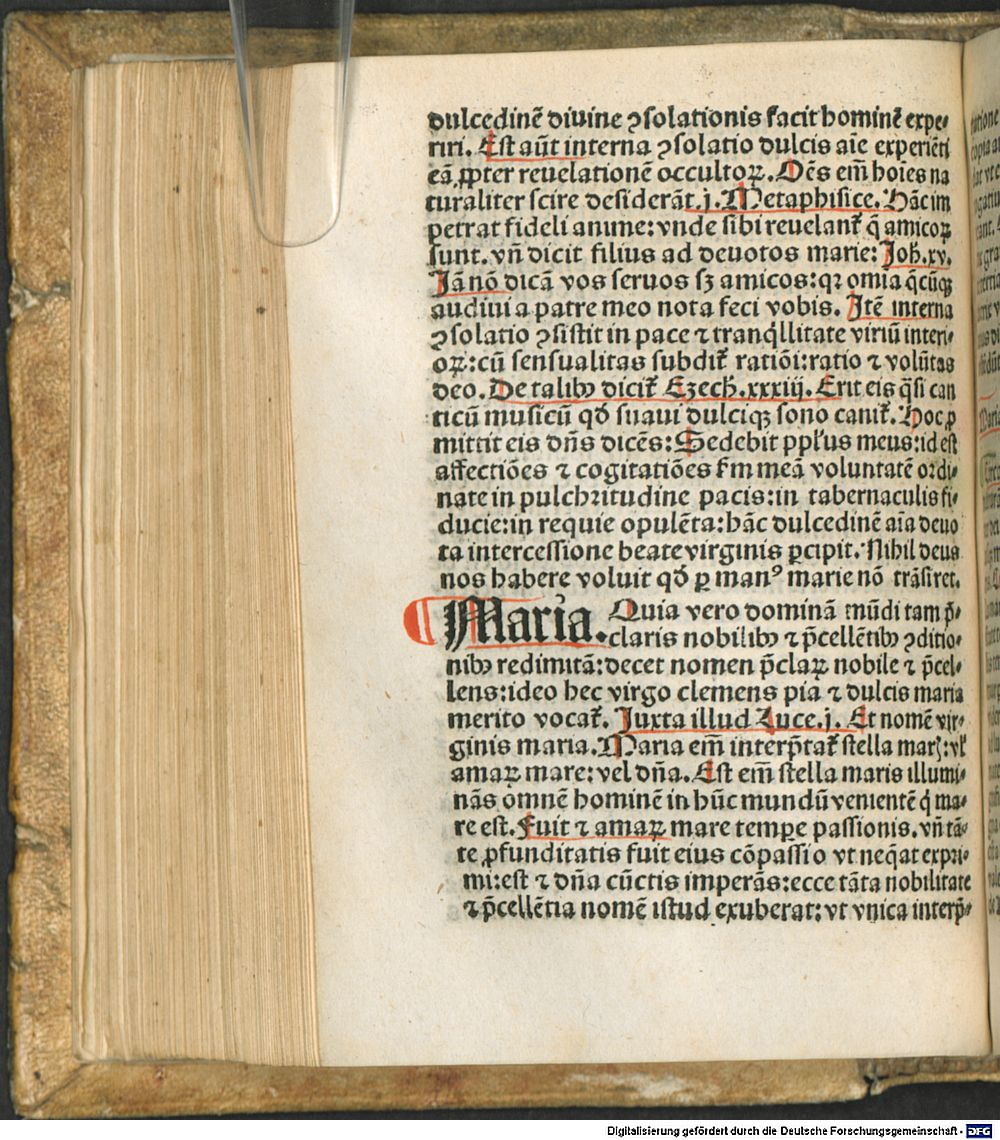 dulcedinē diuine ꝯsolationis facit hominē expe⸗
riri. Est aūt interna ꝯsolatio dulcis aīe experiēti
eā ꝓpter reuelationē occultoꝝ. Oēs em̄ hoīes na
turaliter scire desiderāt. j. Metaphisice. Hāc im
petrat fideli anime: vnde sibi reuelant᷑ q̄ amicoꝝ
sunt. vn̄ dicit filius ad deuotos marie: Joh̄. xv.
Jā nō dicā vos seruos sꝫ amicos: qꝛ omīa q̄cūqꝫ
audiui a patre meo nota feci vobis. Jtē interna
ꝯsolatio ꝯsistit in pace ⁊ tranq̇llitate viriū interi⸗
oꝝ: cū sensualitas subdit᷑ ratiōi: ratio ⁊ volūtas
deo. De talibꝰ dicit᷑ Ezech̄. xxxiij. Erit eis q̄si can
ticū musicū qd̄ suaui dulciqꝫ sono canit᷑. Hoc ꝓ
mittit eis dn̄s dicēs: Sedebit ppl̄us meus: id est
affectiōes ⁊ cogitatiōes ẜm meā voluntatē ordi⸗
nate in pulchritudine pacis: in tabernaculis fi⸗
ducie: in requie opulēta: hāc dulcedinē aīa deuo
ta intercessione beate virginis ꝑcipit. Nihil deus
nos habere voluit qd̄ ꝑ manꝰ marie nō trāsiret.
¶ Maria. Quia vero dominā mūdi tam p̄⸗
claris nobilibꝰ ⁊ p̄cellētibꝰ ꝯditio⸗
nibꝰ redimitā: decet nomen p̄claꝝ nobile ⁊ p̄cel⸗
lens: ideo hec virgo clemens pia ⁊ dulcis maria
merito vocat᷑. Juxta illud Luce. j. Et nomē vir⸗
ginis maria. Maria em̄ interp̄tat᷑ stella marꝭ: vl̓
amaꝝ mare: vel dn̄a. Est em̄ stella maris illumi⸗
nās omnē hominē in hūc mundū venientē q̇ ma⸗
re est. Fuit ⁊ amaꝝ mare tempe passionis. vn̄ tā⸗
te ꝓfunditatis fuit eius cōpassio vt neq̄at expri⸗
mi: est ⁊ dn̄a cūctis imperās: ecce tāta nobilitate
⁊ p̄cellētia nomē istud exuberat: vt vnica interp̄⸗
Digitalisierung gefördert durch die Deutsche Forschungsgemeinschaft - DFG